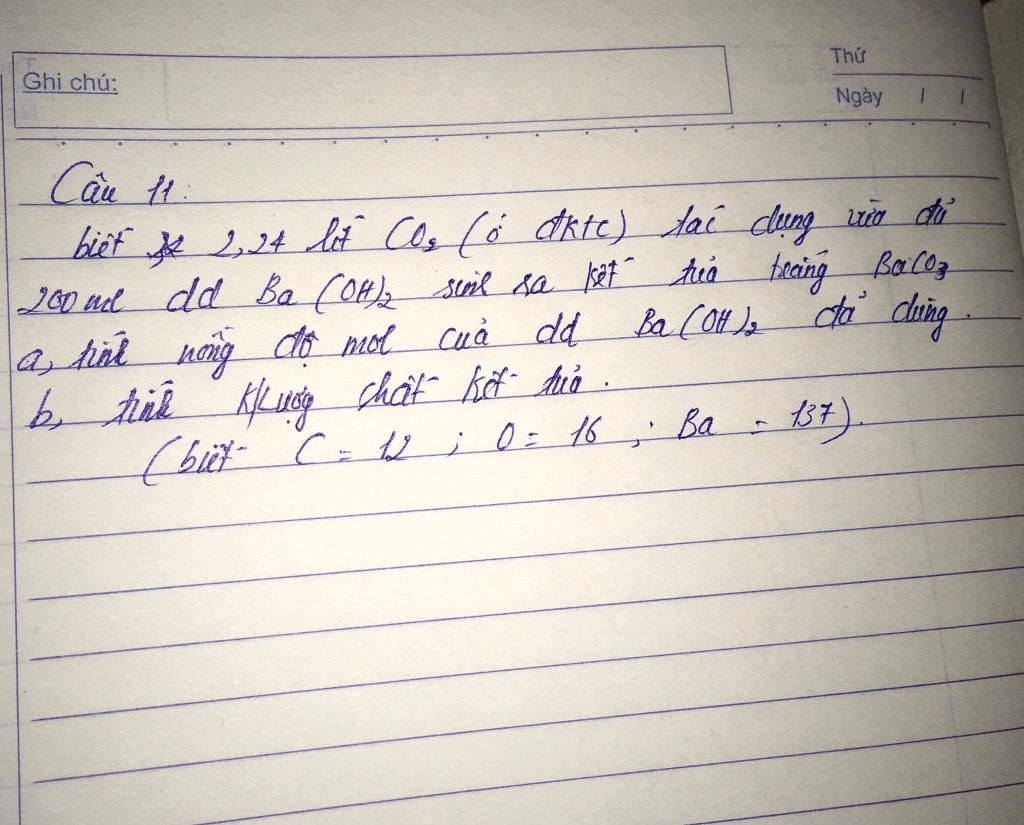 Ghi chú:
Thứ
Ngày / /
Câu 11:
biết 2,24 lít CO₂ (ở đktc) tác dụng vừa đủ
200 ml dd Ba(OH)₂ sinh ra kết tủa trắng BaCO₃
a, tính nồng độ mol của dd Ba(OH)₂ đã dùng.
b, tính k/lượng chất kết tủa.
(biết C = 12 ; O = 16 ; Ba = 137).